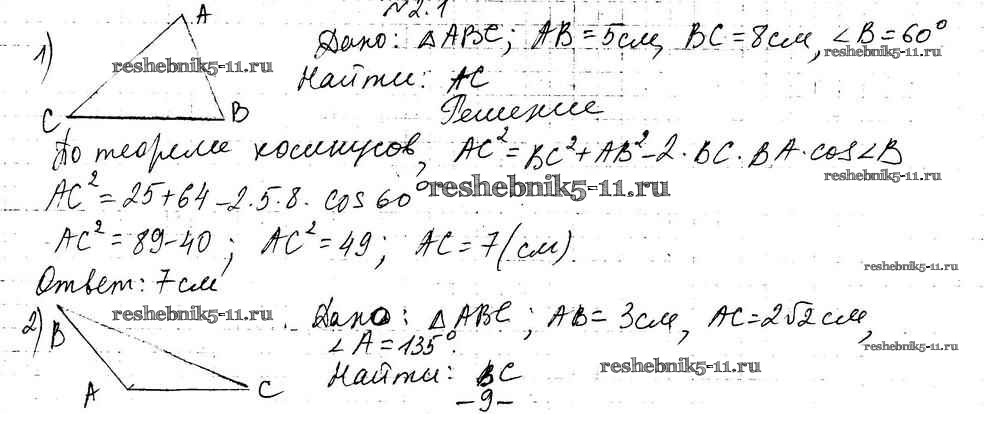 №2.1
1) A Дано: △ABC; AB=5см, BC=8см, ∠B=60°
reshebnik5-11.ru Найти: AC
reshebnik5-11.ru
C B Решение
По теореме косинусов, AC²=BC²+AB²-2·BC·BA·cos∠B
reshebnik5-11.ru
AC²=25+64-2·5·8·cos60°
reshebnik5-11.ru
AC²=89-40; AC²=49; AC=7(см).
reshebnik5-11.ru
Ответ: 7см
2) B reshebnik5-11.ru Дано: △ABC; AB=3см, AC=2√2см,
∠A=135°. reshebnik5-11.ru
A C Найти: BC reshebnik5-11.ru
-9-